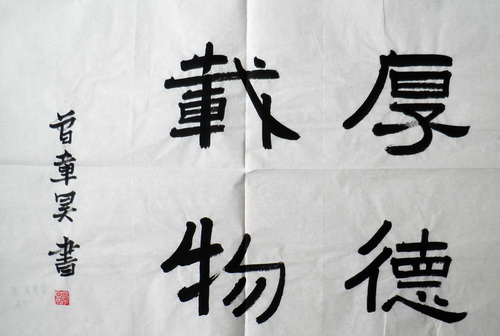 厚德
載物
曾章昊書